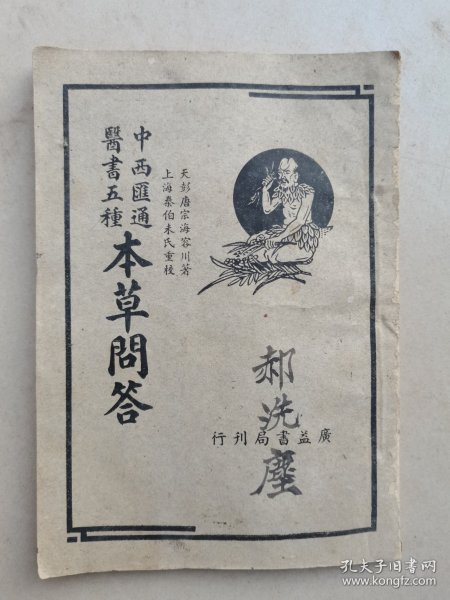 中西匯通
醫書五種
本草問答
天彭唐宗海容川著
上海秦伯未氏重校
郝洗塵
廣益書局刊行
孔夫子旧书网
www.kongfz.com